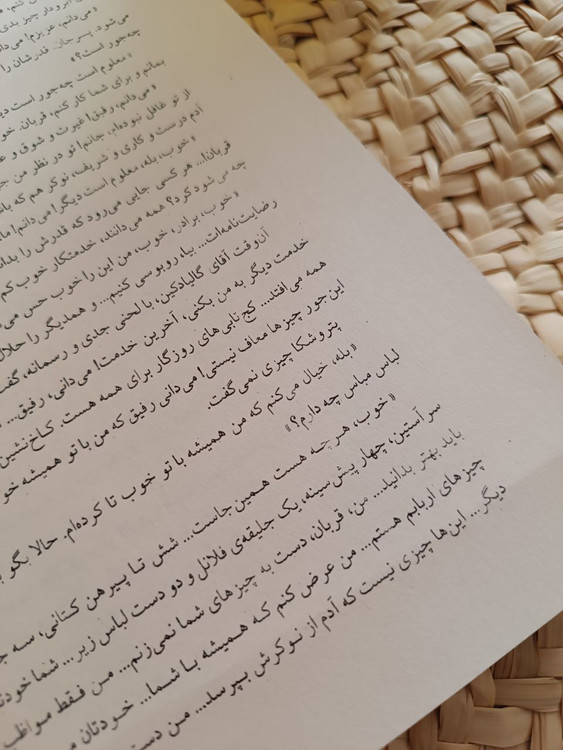 «می‌دانم، عزیزم! می‌دا
می‌شود. پسر جان، قدرشان را
چه‌جور است؟»
«معلوم است چه‌جور است دی
بمانم و برای شما کار کنم، قربان. خو
«می‌دانم، رفیق! غیرت و شوق و
از تو غافل نبوده‌ام، جانم! تو در نظر من
آدم درست و کاری و شریف، نوکر هم که باش
«خوب، بله، معلوم است دیگر! می‌دانم! ما
قربان!... هر کسی جایی می‌رود که قدرش را بدان
چه می‌شود کرد؟ همه می‌دانند، خدمتکار خوب کم
«خوب، برادر، خوب، من این را خوب حس می‌
رضایت‌نامه‌ات... بیا، روبوسی کنیم... و همدیگر را حلال
آن‌وقت آقای گالیادکین، با لحنی جدی و رسمانه، گفت
خدمت دیگر به من بکنی، آخرین خدمت! می‌دانی، رفیق...
همه می‌افتد... کج‌تابی‌های روزگار برای همه هست. کاخ‌نشین
این جور چیزها معاف نیستی! می‌دانی رفیق که من با تو همیشه خو
پتروشکا چیزی نمی‌گفت.
«بله، خیال می‌کنم که من همیشه با تو خوب تا کرده‌ام. حالا بگو
لباس مباس چه دارم؟»
«خوب، هر چه هست همین جاست... شش تا پیرهن کتانی، سه ج
سر آستین، چهار پیش‌سینه، یک جلیقه‌ی فلانل و دو دست لباس زیر... شما خودتا
باید بهتر بدانید... من، قربان، دست به چیزهای شما نمی‌زنم... من فقط مواظب
چیزهای اربابم هستم... من عرض کنم که همیشه با شما... خودتان
دیگر... این‌ها چیزی نیست که آدم از نوکرش بپرسد... من دست